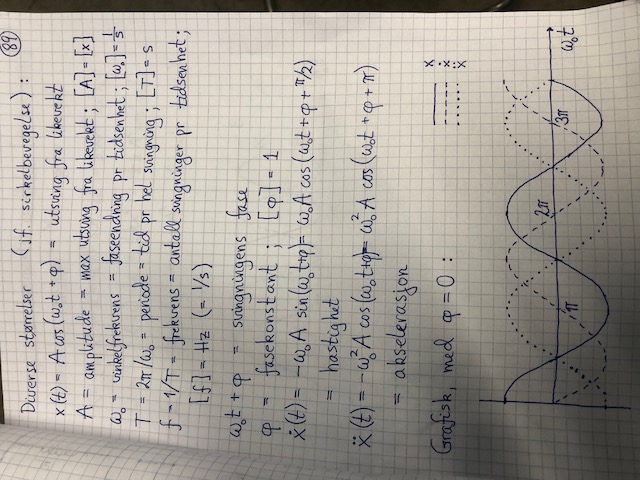 89
Diverse størrelser (jf. sirkelbevegelse):
x(t) = A cos(ω₀t + φ) = utsving fra likevekt
A = amplitude = max utsving fra likevekt ; [A] = [x]
ω₀ = vinkelfrekvens = faseendring pr tidsenhet ; [ω₀] = 1/s
T = 2π/ω₀ = periode = tid pr hel svingning ; [T] = s
f = 1/T = frekvens = antall svingninger pr tidsenhet ;
[f] = Hz (= 1/s)
ω₀t + φ = svingningens fase
φ = fasekonstant ; [φ] = 1
ẋ(t) = -ω₀A sin(ω₀t+φ) = ω₀A cos(ω₀t + φ + π/2)
= hastighet
ẍ(t) = -ω₀²A cos(ω₀t+φ) = ω₀²A cos(ω₀t + φ + π)
= akselerasjon
Grafisk, med φ = 0 :
x
ẋ
ẍ
π
2π
3π
ω₀t